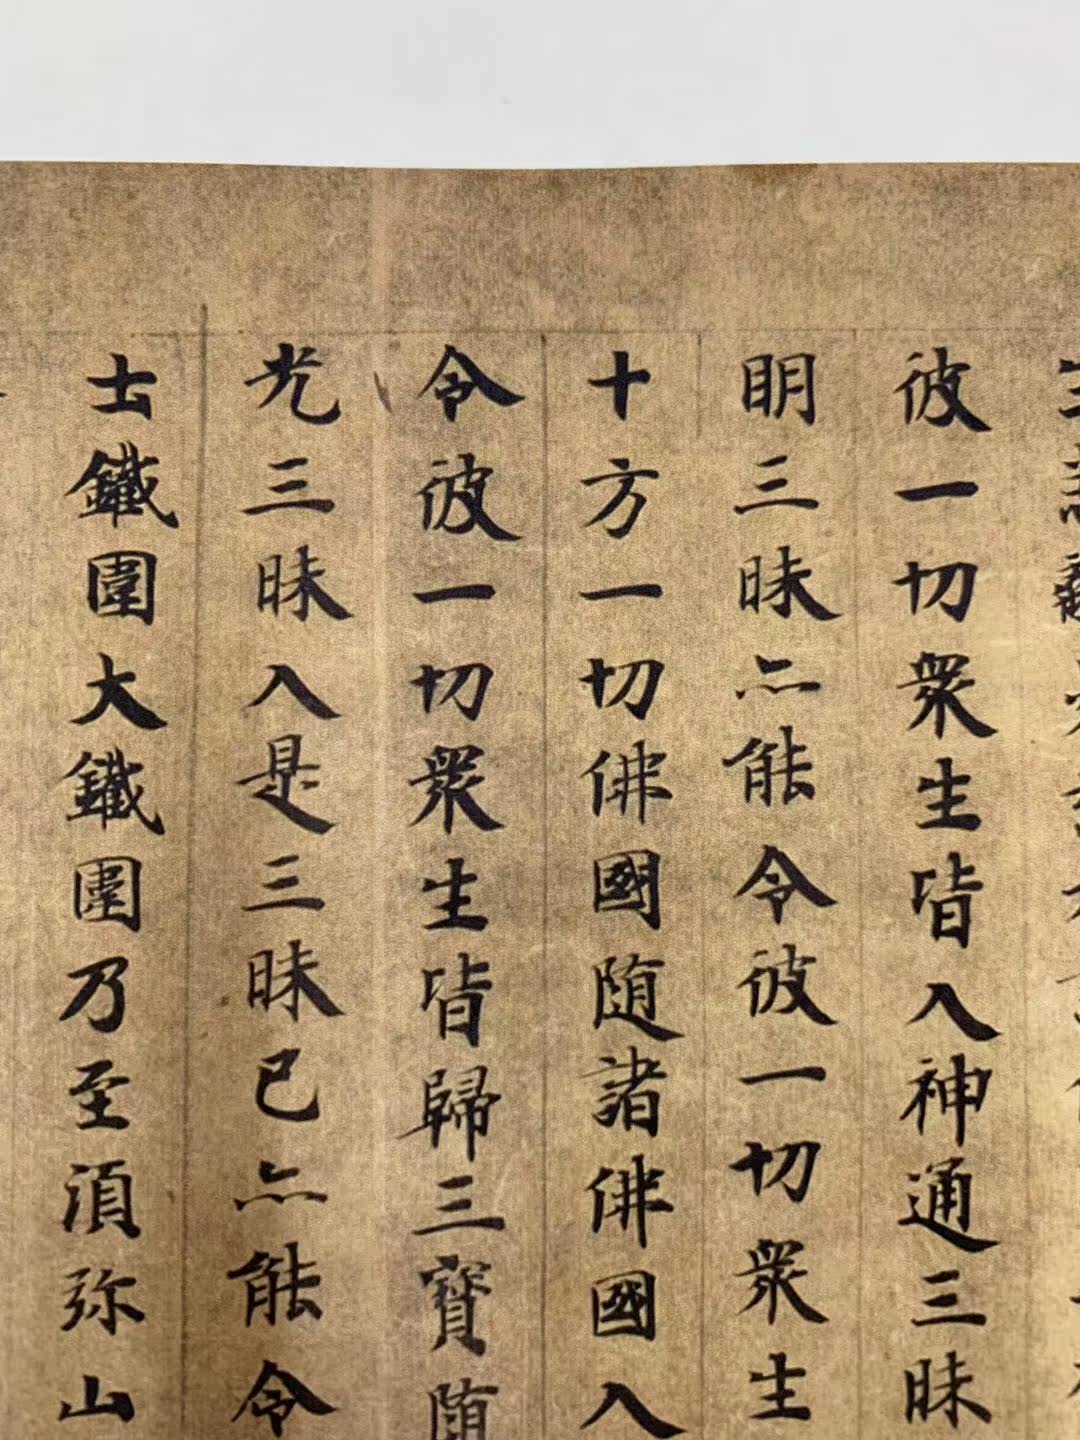 彼一切衆生皆入神通三昧
明三昧亦能令彼一切衆生
十方一切佛國随諸佛國入
令彼一切衆生皆歸三寶随
光三昧入是三昧已亦能令
士鐵圍大鐵圍乃至湏弥山